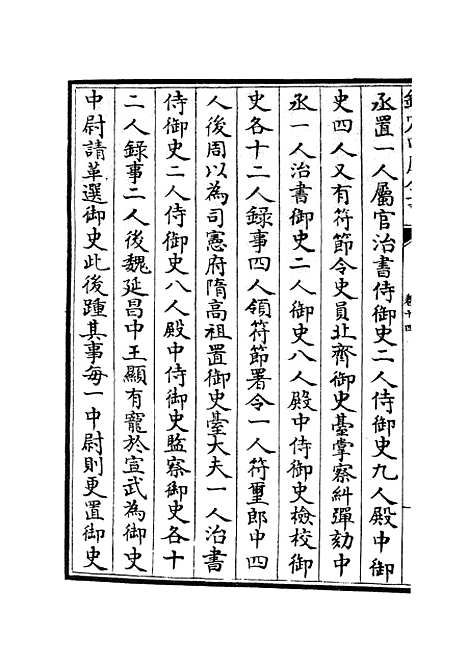 丞置一人屬官治書侍御史二人侍御史九人殿中御
史四人又有符節令史員北齊御史臺掌察糾彈劾中
丞一人治書御史二人御史八人殿中侍御史檢校御
史各十二人録事四人領符節署令一人符璽郎中四
人後周以為司憲府隋高祖置御史臺大夫一人治書
侍御史二人侍御史八人殿中侍御史監察御史各十
二人録事二人後魏延昌中王顯有寵於宣武為御史
中尉請革選御史此後踵其事每一中尉則更置御史